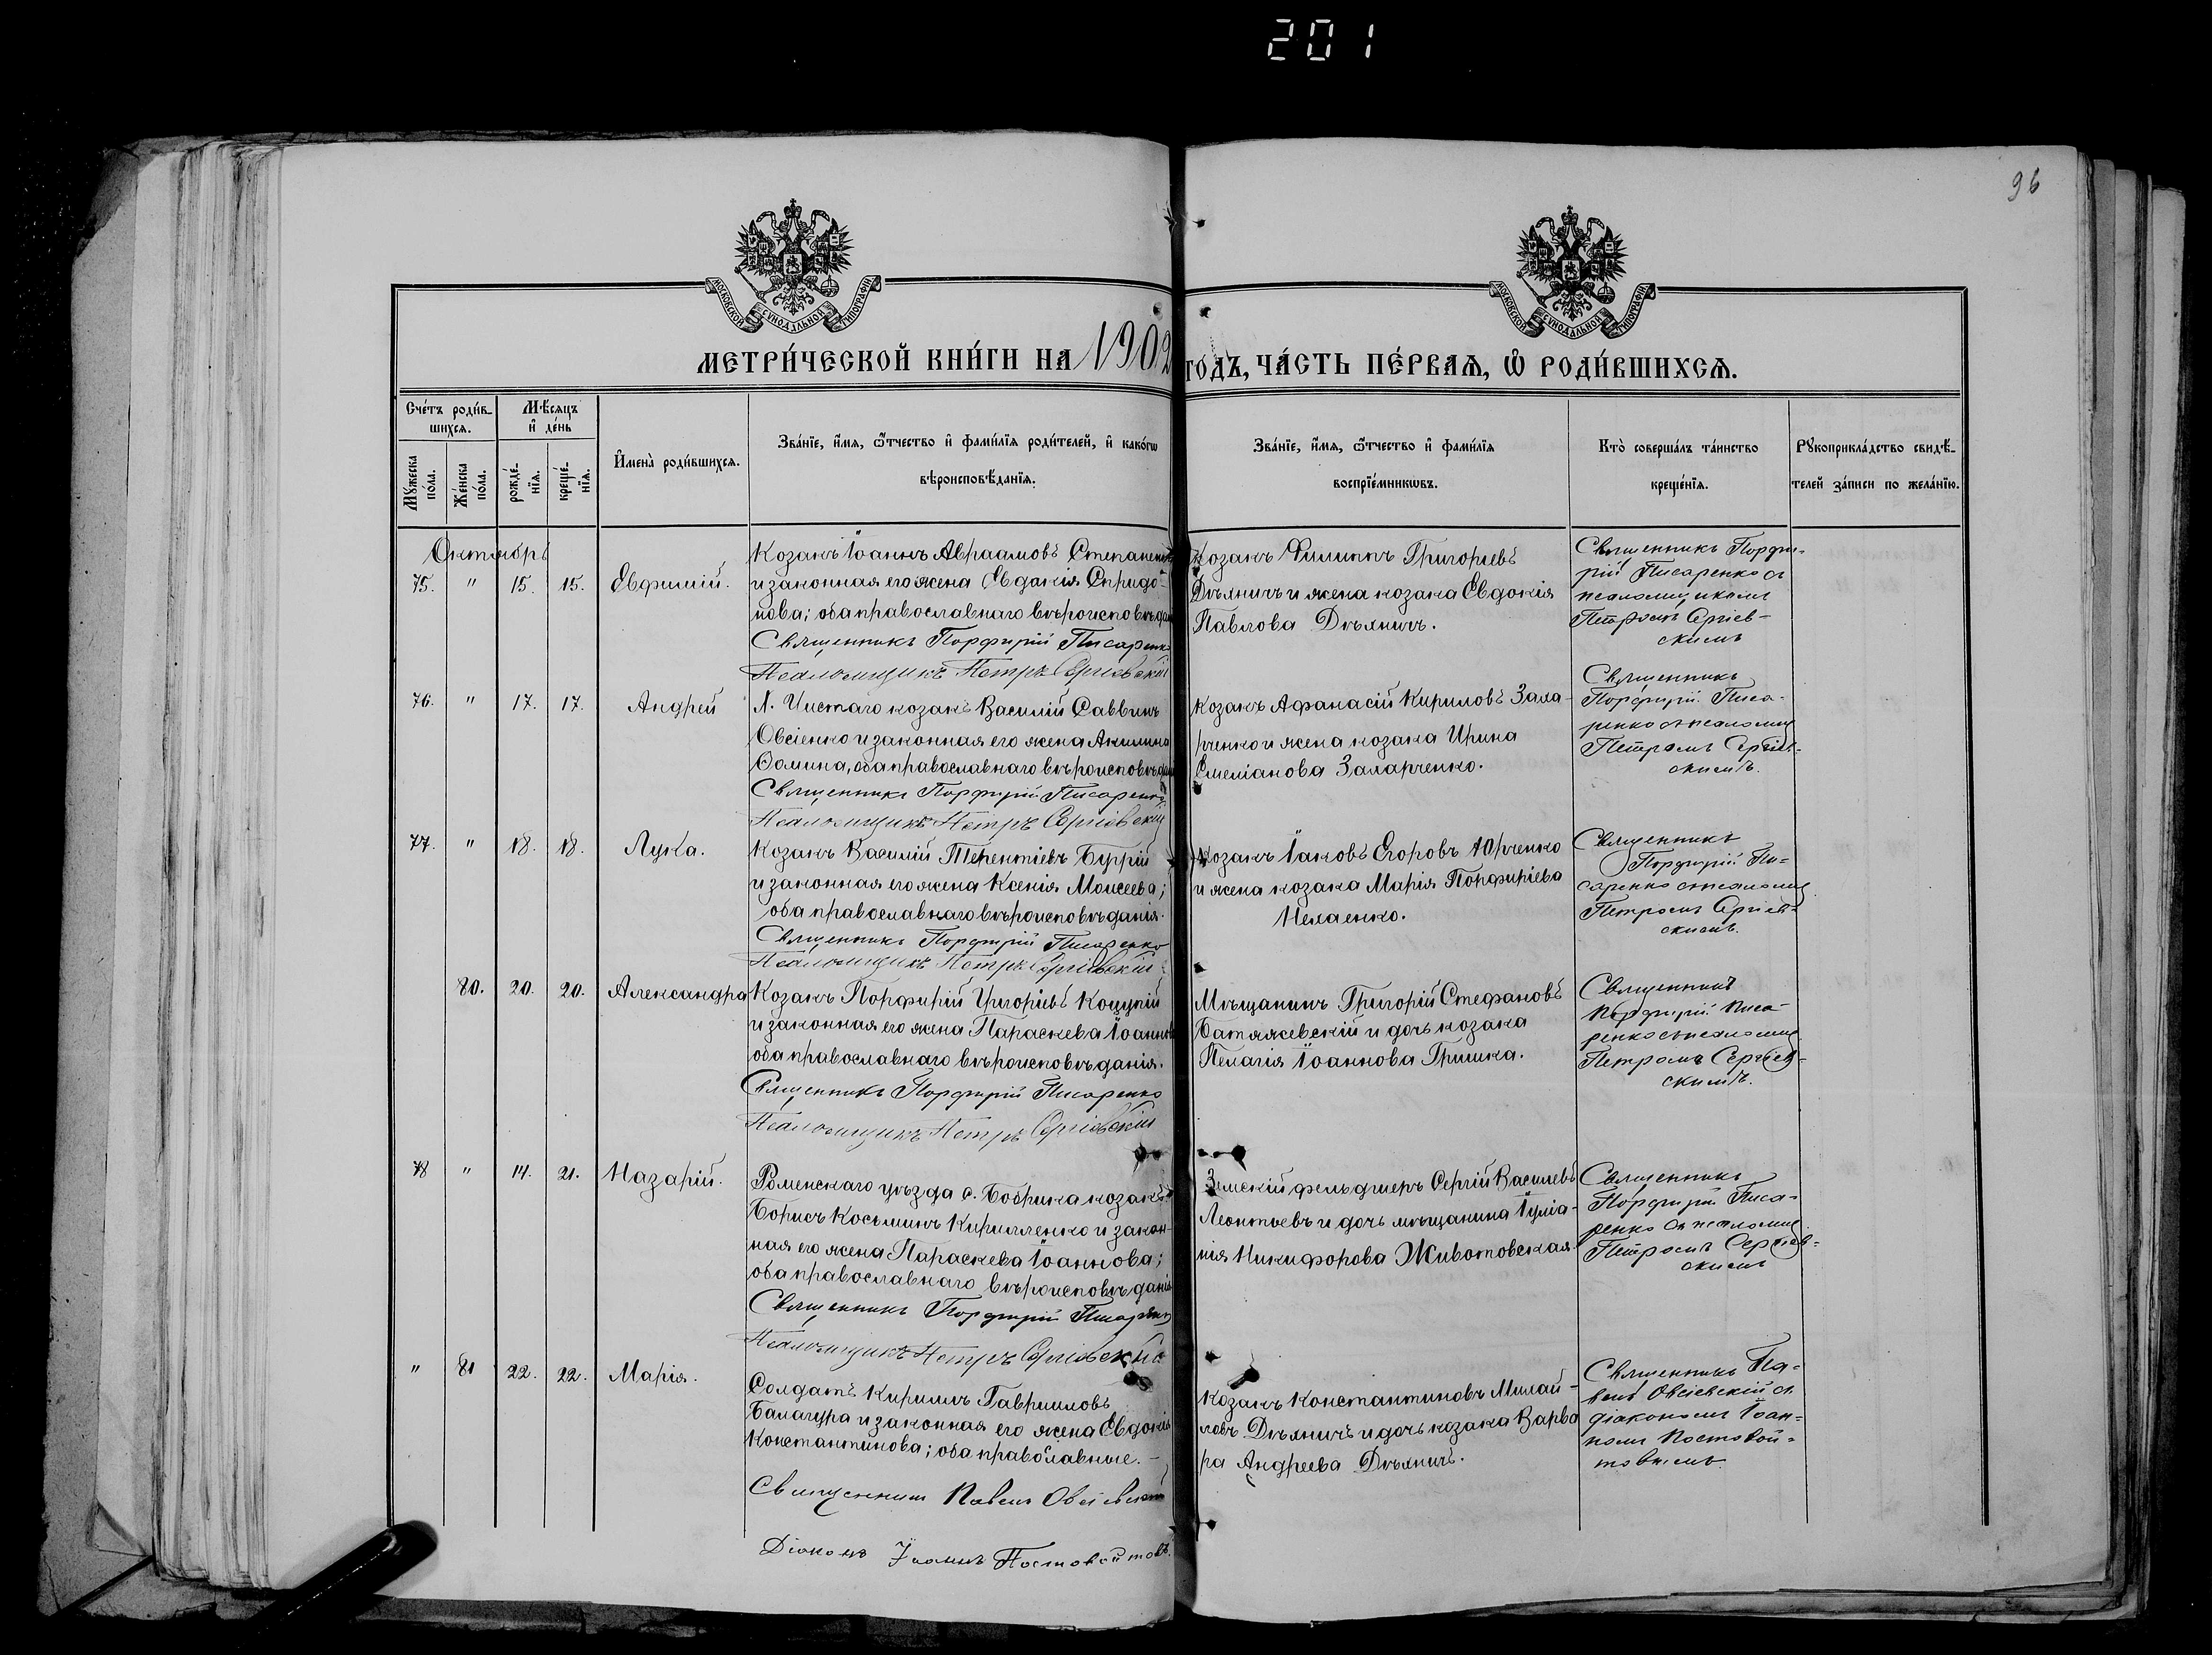 201
96
МОСКОВСКОЙ СѴНОДАЛЬНОЙ ТИПОГРАФІИ
МОСКОВСКОЙ СѴНОДАЛЬНОЙ ТИПОГРАФІИ
МЕТРИ́ЧЕСКОЙ КНИ́ГИ НА 1902 ГОДЪ, ЧА́СТЬ ПЕ́РВАѦ, Ѡ҆ РОДИ́ВШИХСѦ.
Сче́тъ роди́в-
шихсѧ.
Мꙋ́жеска
по́ла.
Же́нска
по́ла.
Мѣ́сѧцъ
и҆ де́нь
рожде́-
нїѧ.
креще́-
нїѧ.
И҆мена̀ роди́вшихсѧ.
Зва́нїе, и҆́мѧ, ѻ҆́тчество и҆ фами́лїѧ роди́телей, и҆ како́гѡ
вѣроисповѣ́данїѧ.
Зва́нїе, и҆́мѧ, ѻ҆́тчество и҆ фами́лїѧ
воспрїе́мникѡвъ.
Кто̀ соверша́лъ та́инство
креще́нїѧ.
Рꙋкоприкла́дство свидѣ́-
телей за́писи по жела́нїю.
Октябрь
75. " 15. 15. Евфимій.
Козакъ Іоаннъ Авраамовъ Степаненко
и законная его жена Евдокія Спиридо-
нова; оба православнаго вѣроисповѣдан
Священникъ Порфирій Писаренко
Псаломщикъ Петръ Сергіевскій
Козакъ Филиппъ Григоріевъ
Дѣяничъ и жена козака Евдокія
Павлова Дѣяничъ.
Священникъ Порфи-
рій Писаренко съ
псаломщикомъ
Петромъ Сергіев-
скимъ
76. " 17. 17. Андрей
Х. Чистаго козакъ Василій Саввинъ
Овсіенко и законная его жена Акилина
Ѳомина, оба православнаго вѣроисповѣдан
Священникъ Порфирій Писаренко
Псаломщикъ Петръ Сергіевскій
Козакъ Афанасій Кириловъ Заха-
рченко и жена козака Ирина
Емеліанова Захарченко.
Священникъ
Порфирій Писа-
ренко съ псаломщ
Петромъ Сергіев-
скимъ.
77. " 18. 18. Лука.
Козакъ Василій Терентіевъ Буррій
и законная его жена Ксенія Моисеева;
оба православнаго вѣроисповѣданія.
Священникъ Порфирій Писаренко
Псаломщикъ Петръ Сергіевскій
Козакъ Іаковъ Егоровъ Юрченко
и жена козака Марія Порфиріева
Нехаенко.
Священникъ
Порфирій Пи-
саренко съ псаломщ.
Петромъ Сергіев-
скимъ.
80. 20. 20. Александра
Козакъ Порфирій Григоріевъ Коцупій
и законная его жена Параскева Іоаннов
оба православнаго вѣроисповѣданія.
Священникъ Порфирій Писаренко
Псаломщикъ Петръ Сергіевскій
Мѣщанинъ Григорій Стефановъ
Батяжевскій и дочь козака
Пелагія Іоаннова Гришка.
Священникъ
Порфирій Писа-
ренко съ псаломщ
Петромъ Сергіев-
скимъ.
78 " 14. 21. Назарій.
Роменскаго уѣзда с. Бобрика козакъ
Борисъ Косьминъ Кирилленко и закон-
ная его жена Параскева Іоаннова;
оба православнаго вѣроисповѣданія
Священникъ Порфирій Писаренко
Псаломщикъ Петръ Сергіевскій
Земскій фельдшеръ Сергій Василіевъ
Леонтьевъ и дочь мѣщанина Іуліа-
нія Никифорова Животовская.
Священникъ
Порфирій Писа-
ренко съ псаломщ.
Петромъ Сергіев-
скимъ
" 81 22. 22. Марія.
Солдатъ Кириллъ Гаврииловъ
Балагура и законная его жена Евдокія
Константинова; оба православные.-
Священникъ Павелъ Овсіевскій
Діаконъ Іоаннъ Постовойтовъ.
Козакъ Константиновъ Михай-
ловъ Дѣяничъ и дочь козака Варва
ра Андреева Дѣяничъ.
Священникъ Па-
велъ Овсіевскій съ
діакономъ Іоан-
номъ Постовой-
товымъ